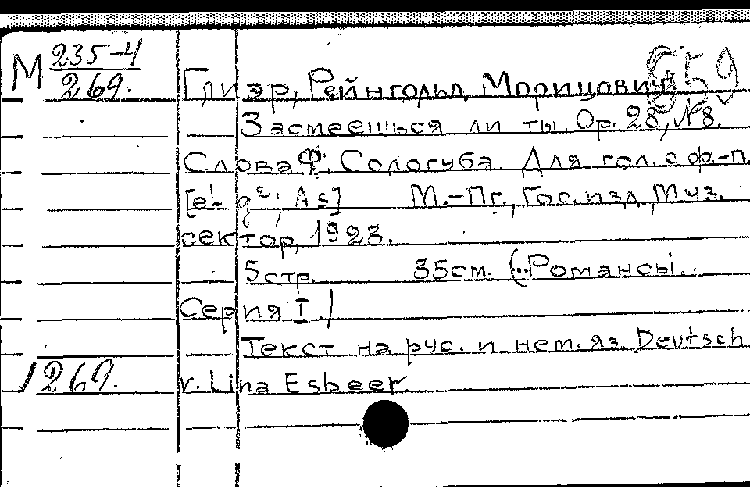 М 235-4
269.
659
Глиэр, Рейнгольд Морицович
Засмеешься ли ты. Op. 28, №8.
Слова Ф. Сологуба. Для гол. с ф-п
[e¹- g²; As] М.-Пг., Гос. изд. Муз.
сектор, 1923.
5 стр. 35 см. (Романсы.
Серия I.)
Текст на рус. и нем. яз. Deutsch
1269. v. Lina Esbeer